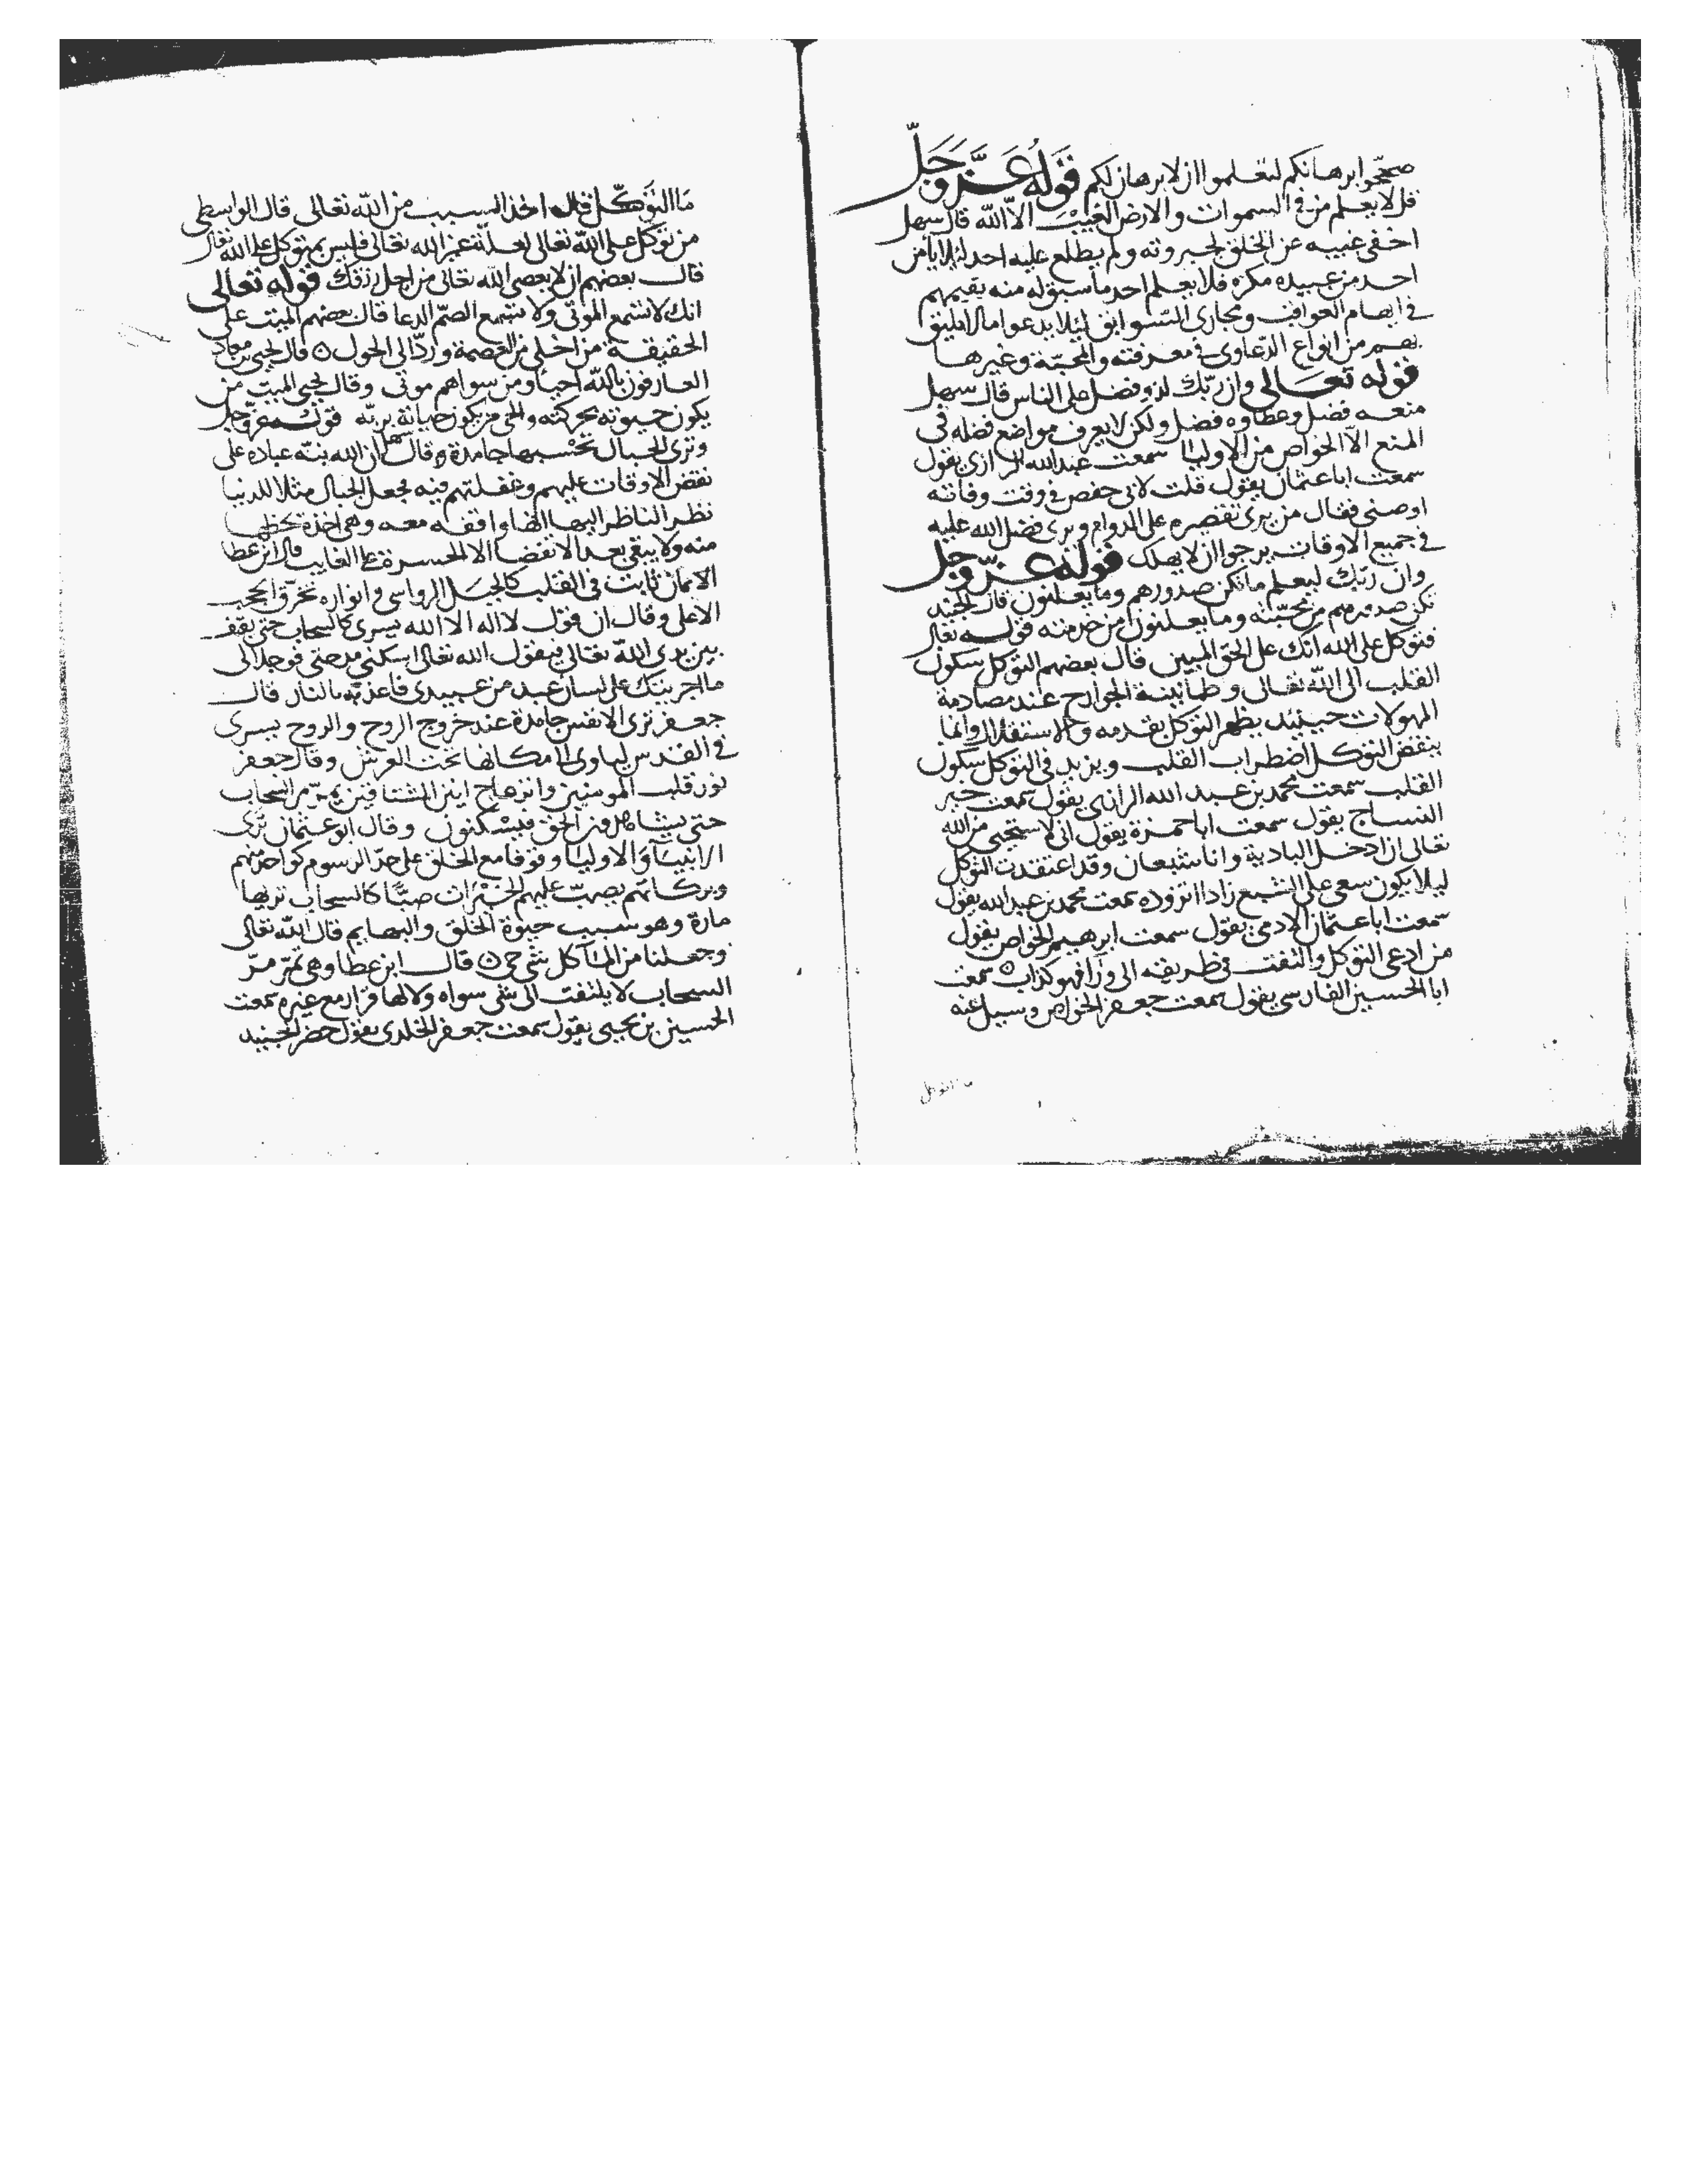 صححوا برهانكم لتعلموا ان لا برهان لكم قوله عز وجل
قل لا يعلم من في السموات والارض الغيب الا الله قال سهل
اخفى غيبه عن الخلق لجبروته ولم يطلع عليه احد لئلا يأمن
احد من عبيده مكره فلا يعلم احد ما سبق له منه
في ابهام العواقب ومجارى السوابق لئلا يدعوا مالا يليق
بهم من انواع الدعاوى في معرفته والمحبة وغيرها
قوله تعالى وان ربك لذو فضل على الناس قال سهل
منعه فضل وعطاوه فضل ولكن لا يعرف مواضع فضله في
المنع الا الخواص من الاوليا سمعت عبد الله الرازي يقول
سمعت ابا عثمان يقول قلت لابى حفص في وقت وفاته
اوصني فقال من يرى تقصيره على الدوام ويرى فضل الله عليه
في جميع الاوقات يرجوا ان لا يهلك قوله عز وجل
وان ربك ليعلم ما تكن صدورهم وما يعلنون قال الجنيد
تكن صدورهم من محبته وما يعلنون من خدمته قوله تعالى
فتوكل على الله انك على الحق المبين قال بعضهم التوكل سكون
القلب الى الله تعالى وطمانينة الجوارح عند مصادمة
المهولات حينئذ يظهر التوكل بقدمه وانما
ينقض التوكل اضطراب القلب ويزيد في التوكل سكون
القلب سمعت محمد بن عبد الله الرازى يقول سمعت خير
النساج يقول سمعت ابا حمزة يقول اني لاستحيي من الله
تعالى ان ادخل البادية وانا شبعان وقد اعتقدت التوكل
ليلا يكون سعى على الشبع زادا اتزوده سمعت محمد بن عبد الله يقول
سمعت ابا عثمان الادمى يقول سمعت ابرهيم الخواص يقول
من ادعى التوكل والتفت في طريقه الى ورا فهو كذاب سمعت
ابا الحسين الفارسى يقول سمعت جعفر الخواص وسيل عنه
ما التوكل
ما التوكل قال اخذ السبب من الله تعالى قال الواسطى
من توكل على الله تعالى لعلة غير الله تعالى فليس بمتوكل على الله تعالى
قال بعضهم ان لا يعصى الله تعالى من اجل رزقك قوله تعالى
انك لا تسمع الموتى ولا تسمع الصم الدعا قال بعضهم الميت على
الحقيقة من اخلى من العصمة ورد الى الحول قال يحيى بن معاذ
العارفون بالله احيا ومن سواهم موتى وقال يحيى الميت من
يكون حيوته بحركته والحى من يكون حياته بربه قوله عز وجل
وترى الجبال تحسبها جامدة قال سهل ان الله نبه عباده على
نقض الاوقات عليهم وغفلتهم فيه فجعل الجبال مثلا للدنيا
نظر الناظر اليها انها واقفه معه وهى اخذة بحظها
منه ولا يبقى بعد الانقضا الا الحسرة على الفايت قال ابن عطا
الايمان ثابت في القلب كالجبل الرواسى وانواره تخرق الحجب
الاعلى وقال ان قول لا اله الا الله يسرى كالسحاب حتى يقف
بين يدى الله تعالى فيقول الله تعالى اسكني مدحتى فوجلالى
ما اجريتك على لسان عبد من عبيدى فاعذبه بالنار قال
جعفر ترى الانفس جامدة عند خروج الروح والروح يسرى
في القدس لياوى الى مكانها تحت العرش وقال جعفر
نور قلب المومنين وانزعاج انين المشتاقين يمر مر السحاب
حتى يشاهدون الحق فيسكنون وقال ابو عثمان ترى
الانبيا والاوليا وقوفا مع الخلق على حد الرسوم كواحد منهم
وبركاتهم يصب عليهم الخيرات صبا كالسحاب تريها
مارة وهو سبب حيوة الخلق والبهايم قال الله تعالى
وجعلنا من الما كل شى حى قال ابن عطا وهى تمر مر
السحاب لا يلتفت الى شى سواه ولا لها قرار مع غيره سمعت
الحسين بن يحيى يقول سمعت جعفر الخلدى يقول حضر الجنيد